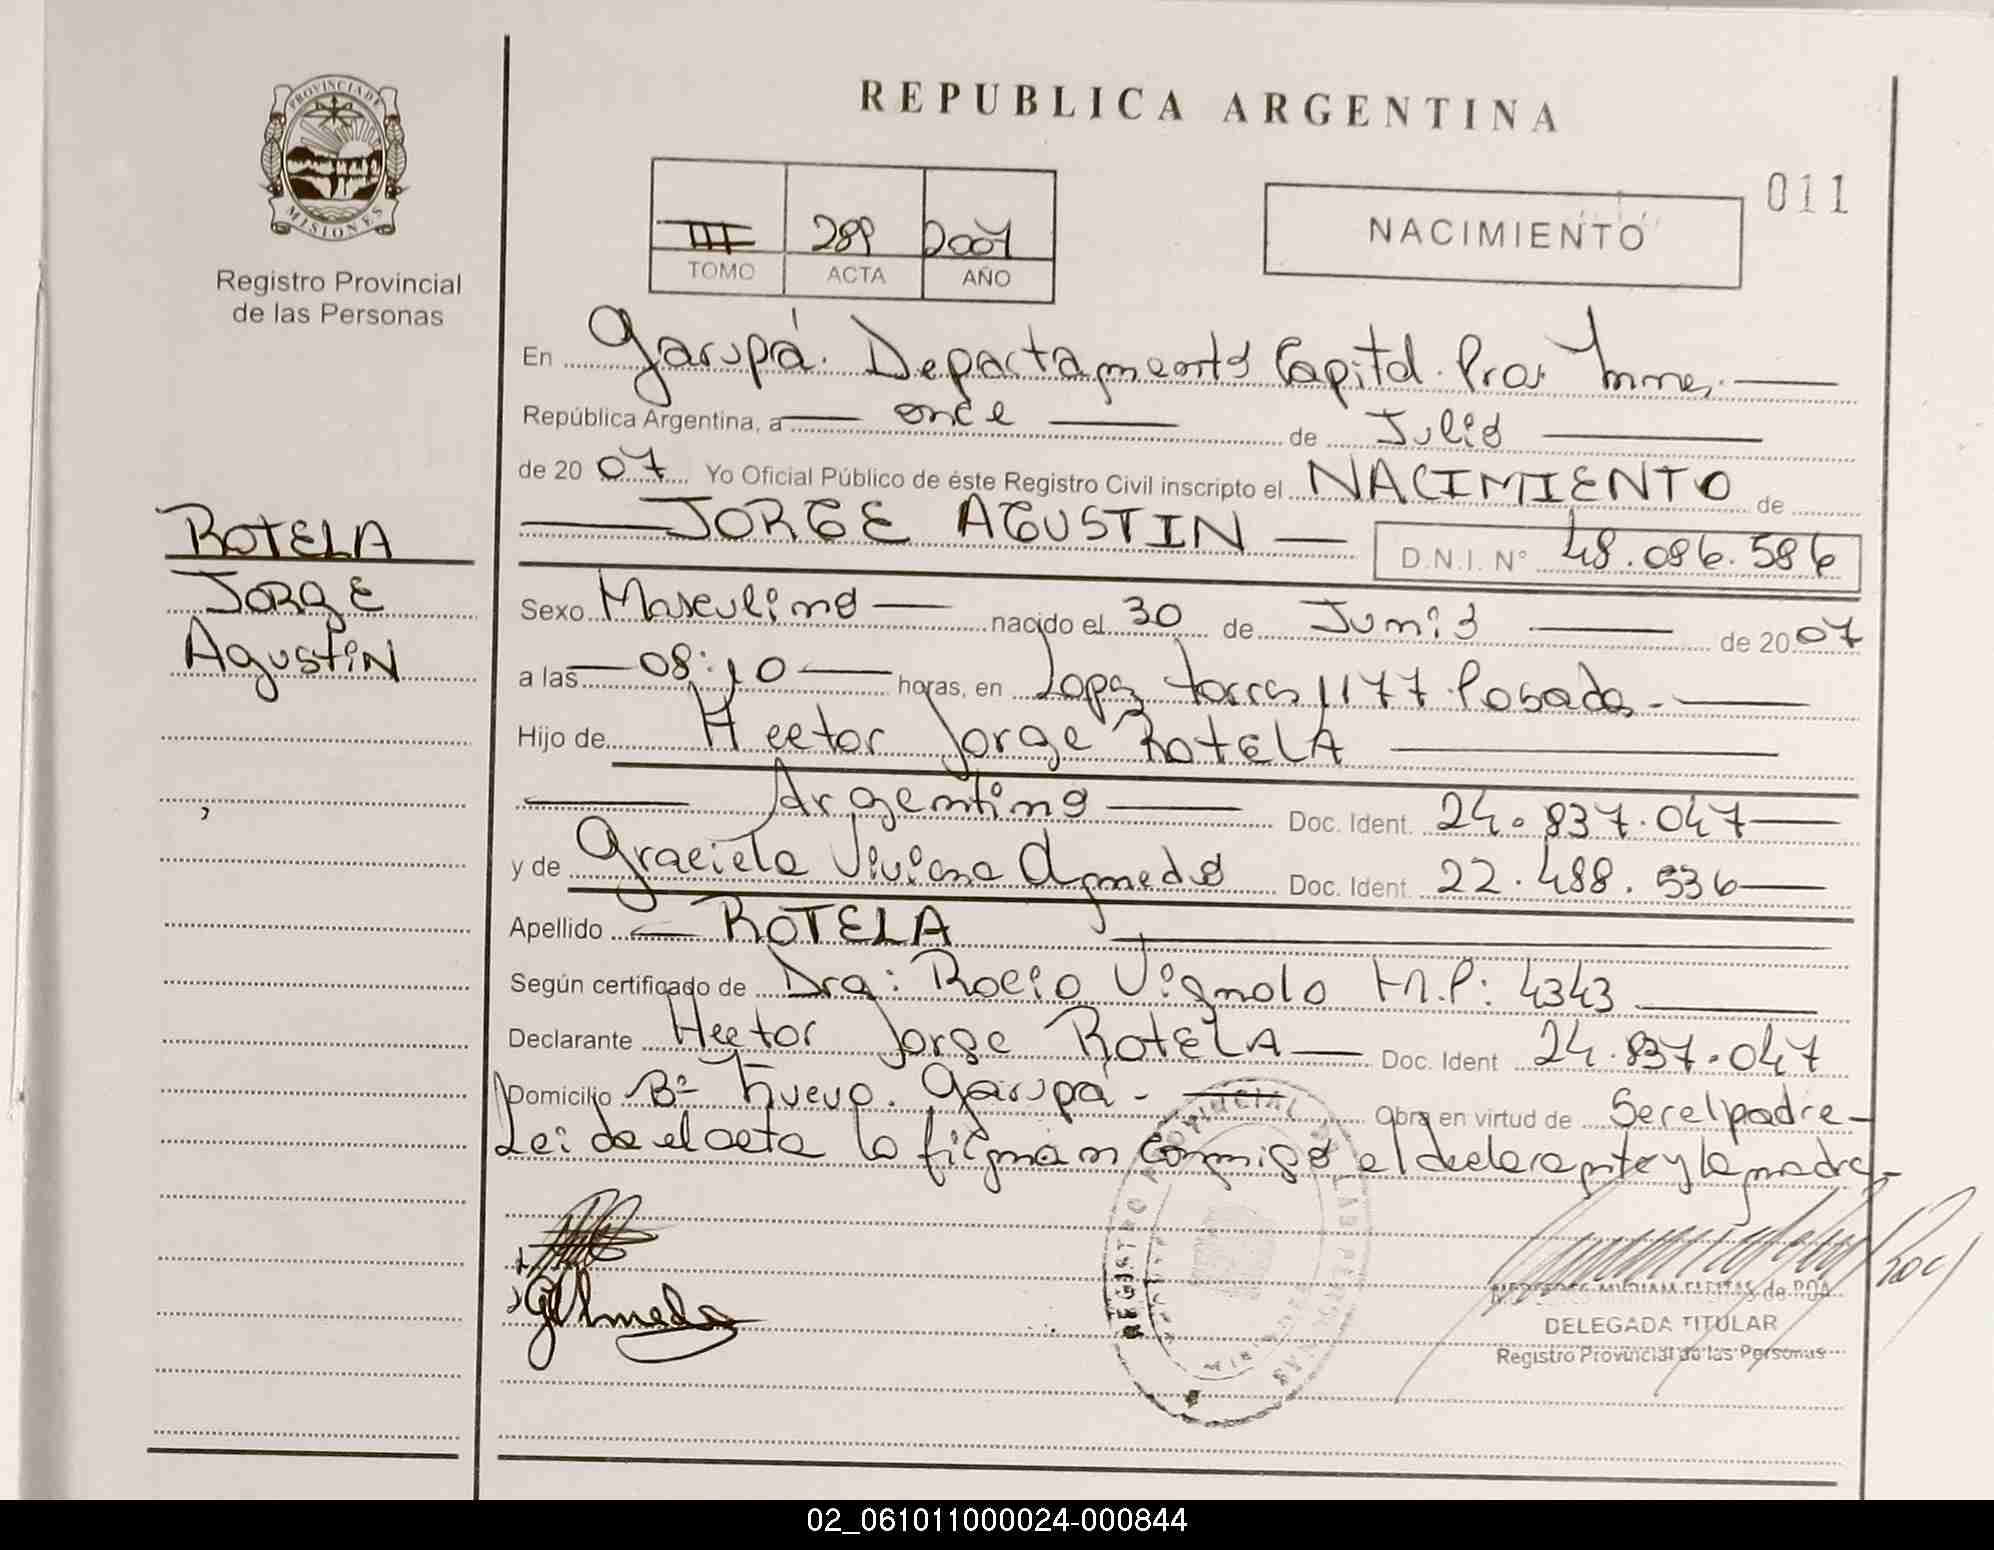 PROVINCIA DE
MISIONES
Registro Provincial
de las Personas
ROTELA
JORGE
AgustiN
REPUBLICA ARGENTINA
011
III 289 2007
TOMO ACTA AÑO
NACIMIENTO
En Garupá. Departamento Capital. Pros
República Argentina, a once de Julio
de 2007 Yo Oficial Público de éste Registro Civil inscripto el NACIMIENTO de
JORGE AGUSTIN D.N.I. N° 48.086.586
Sexo Masculino nacido el 30 de Junio de 2007
a las 08:10 horas, en Lopez torres 1177. Posadas.-
Hijo de Hector Jorge ROtELA
Argentino Doc. Ident. 24.837.047
y de Graciela Viviana Doc. Ident. 22.488.536
Apellido ROTELA
Según certificado de Dra: Rocio Vignolo M.P: 4343
Declarante Hector Jorge ROtELA Doc. Ident 24.837.047
Domicilio Bº Nuevo. Garupa - Obra en virtud de Ser el padre-
Leida el acta la firman conmigo el declarante y la madre.-
MIRIAM FLEITAS de ROA
DELEGADA TITULAR
Registro Provincial de las Personas
REGISTRO PROVINCIAL DE LAS PERSONAS
02_061011000024-000844